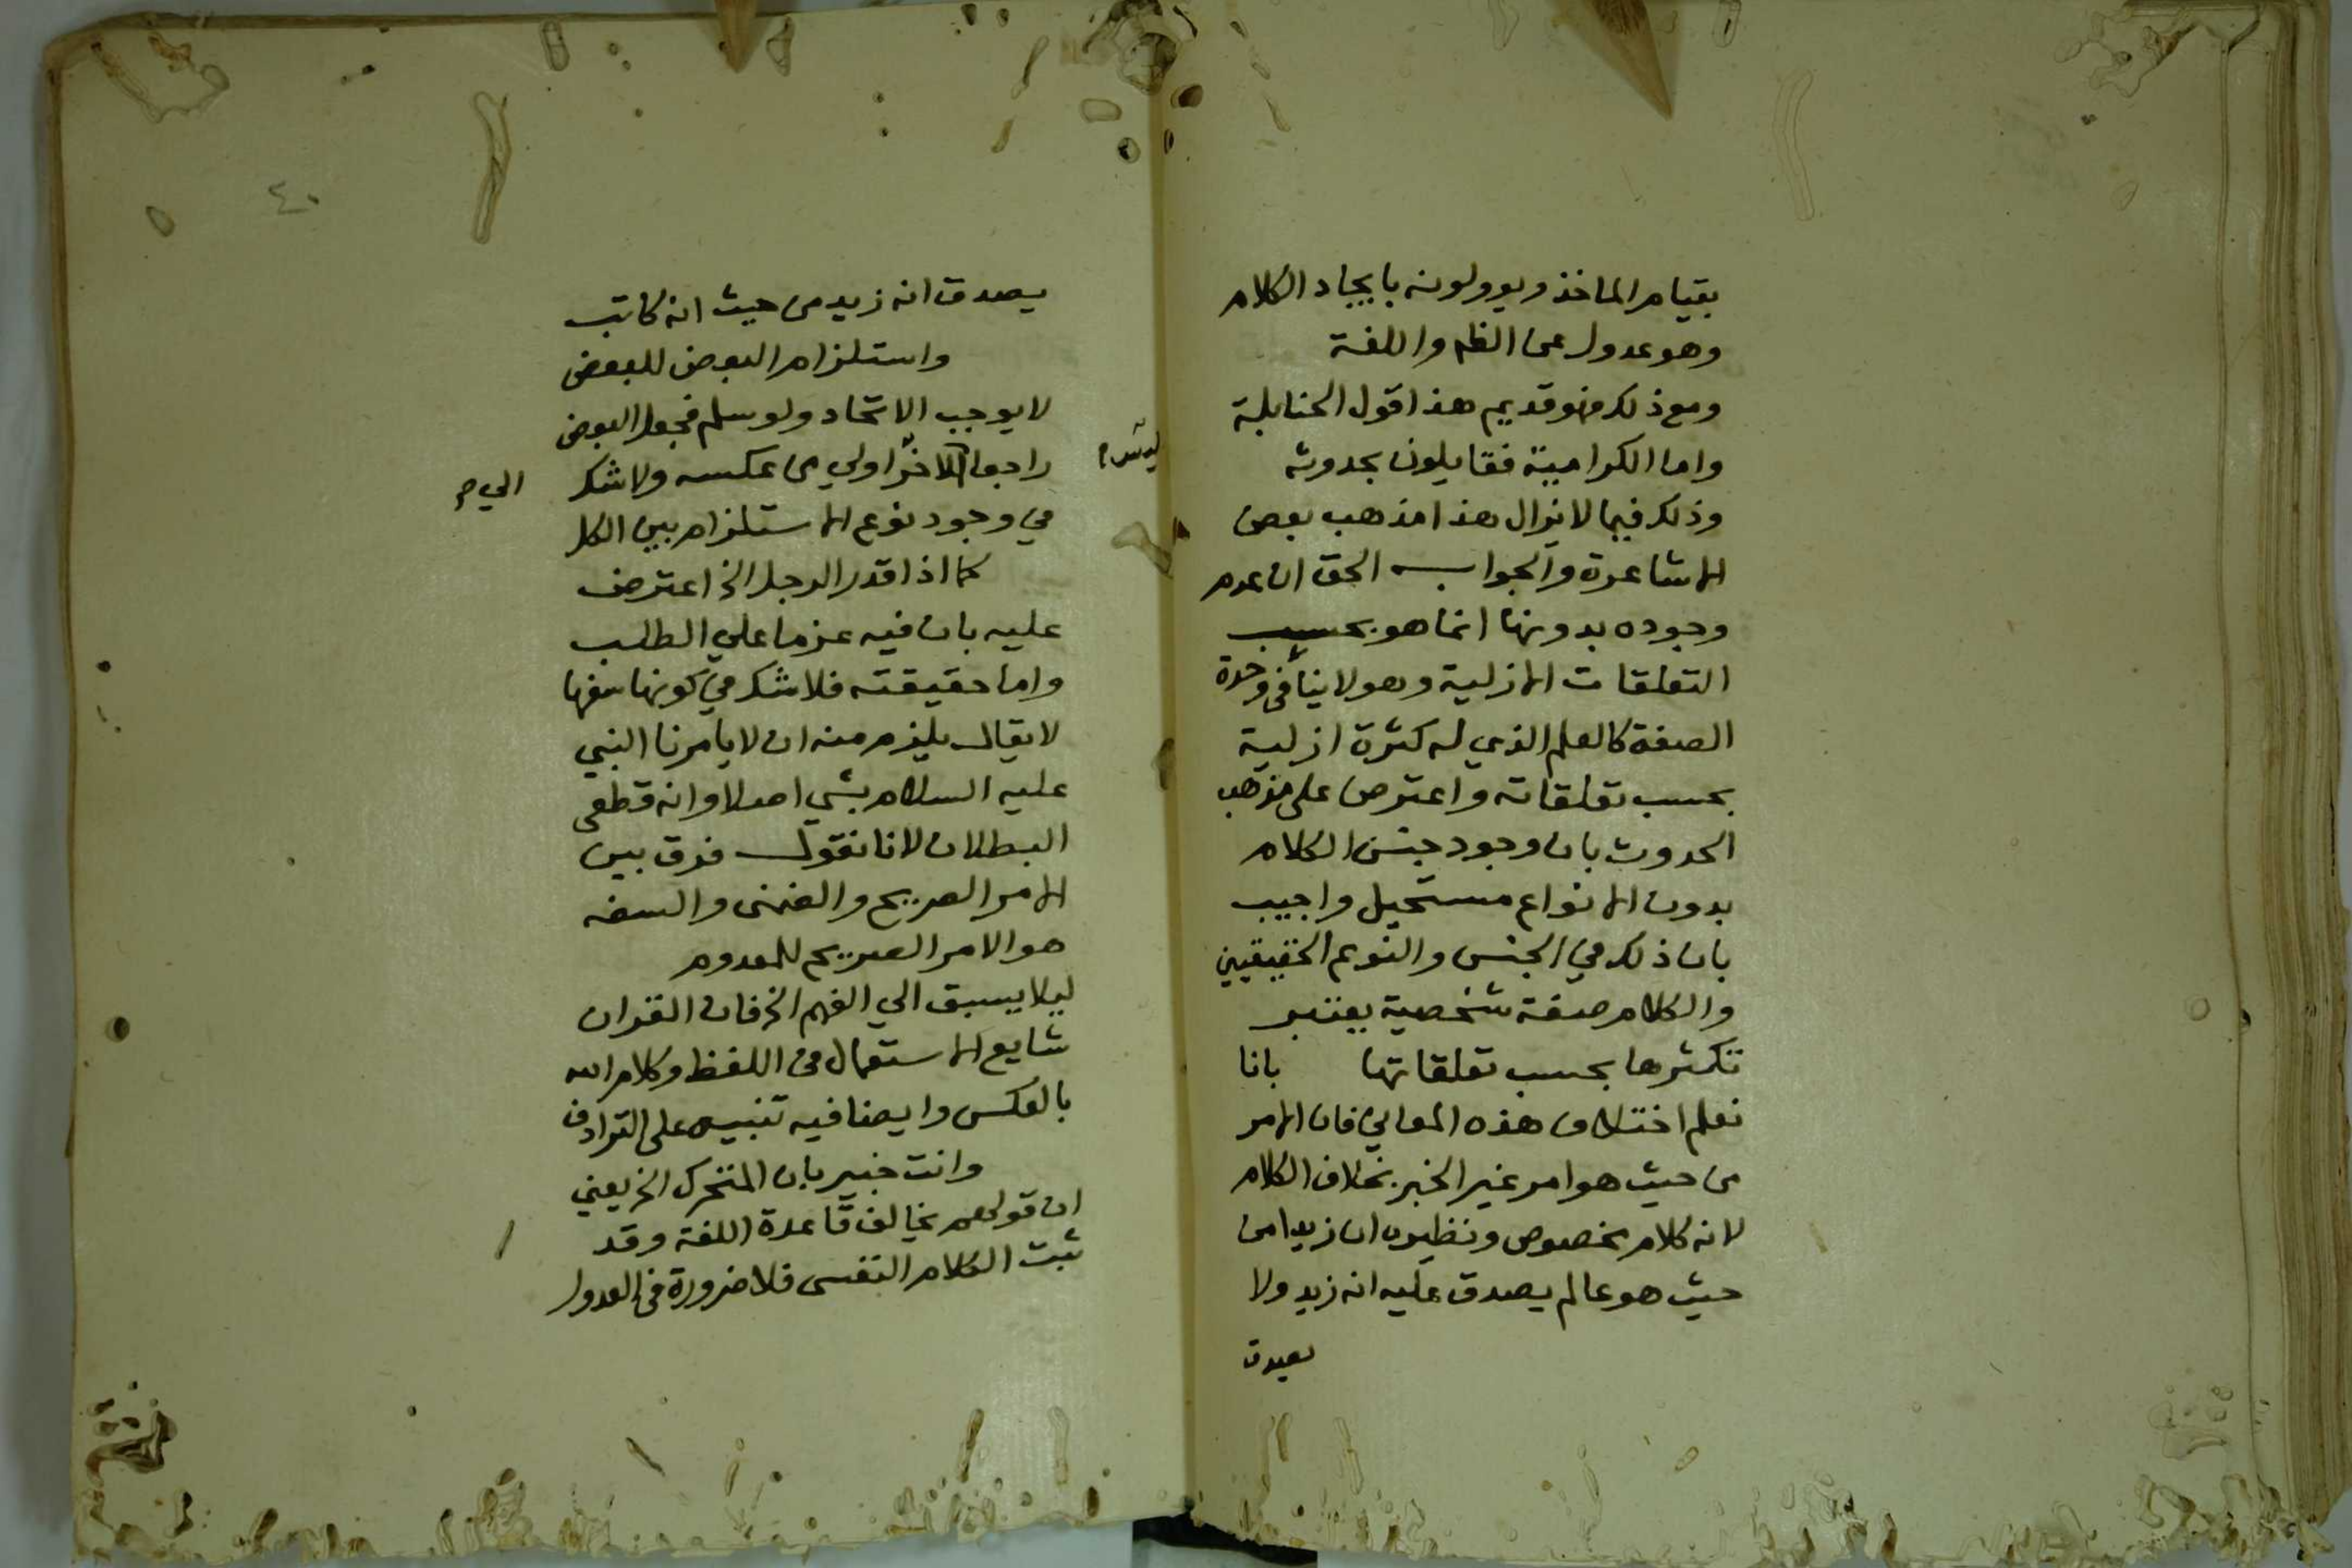 بقيام الماخذ ويوولونه بايجاد الكلام
وهو عدول عن الظم واللغة
ومع ذلك فهو قديم هذا قول الحنابلة
واما الكرامية فقايلون بحدوثه
وذلك فيما لا يزال هذا مذهب بعض
الاشاعرة والجواب الحق ان عدم
وجوده بدونها انما هو بحسب
التعلقات الازلية وهو لا ينافى وحدة
الصفة كالعلم الذي له كثرة ازلية
بحسب تعلقاته واعترض على مذهب
الحدوث بان وجود جنس الكلام
بدون الانواع مستحيل واجيب
بان ذلك في الجنس والنوع الحقيقيين
والكلام صفة شخصية يعتبر
تكثرها بحسب تعلقاتها بانا
نعلم اختلاف هذه المعاني فان الامر
من حيث هو امر غير الخبر بخلاف الكلام
لانه كلام مخصوص ونظيره ان زيدا من
حيث هو عالم يصدق عليه انه زيد ولا
يصدق
٤٠
يصدق انه زيد من حيث انه كاتب
واستلزام البعض للبعض
لا يوجب الاتحاد ولو سلم فجعل البعض
راجعا الاخر اولي من عكسه ولا شك
الي
في وجود نوع الاستلزام بين الكل
كما اذا قدر الرجل الخ اعترض
عليه بان فيه عزما علي الطلب
واما حقيقته فلا شك في كونها سفها
لا يقال يلزم منه ان لا يامرنا النبي
عليه السلام بشي اصلا وانه قطعى
البطلان لانا نقول فرق بين
الامر الصريح والضمنى والسفه
هو الامر الصريح للمعدوم
ليلا يسبق الي الفهم الخ فان القران
شايع الاستعمال فى اللفظ وكلام الله
بالعكس وايضا فيه تنبيه على الترادف
وانت خبير بان المتحرك الخ يعني
ان قولهم يخالف قاعدة اللغة وقد
ثبت الكلام النفسى فلا ضرورة فى العدول